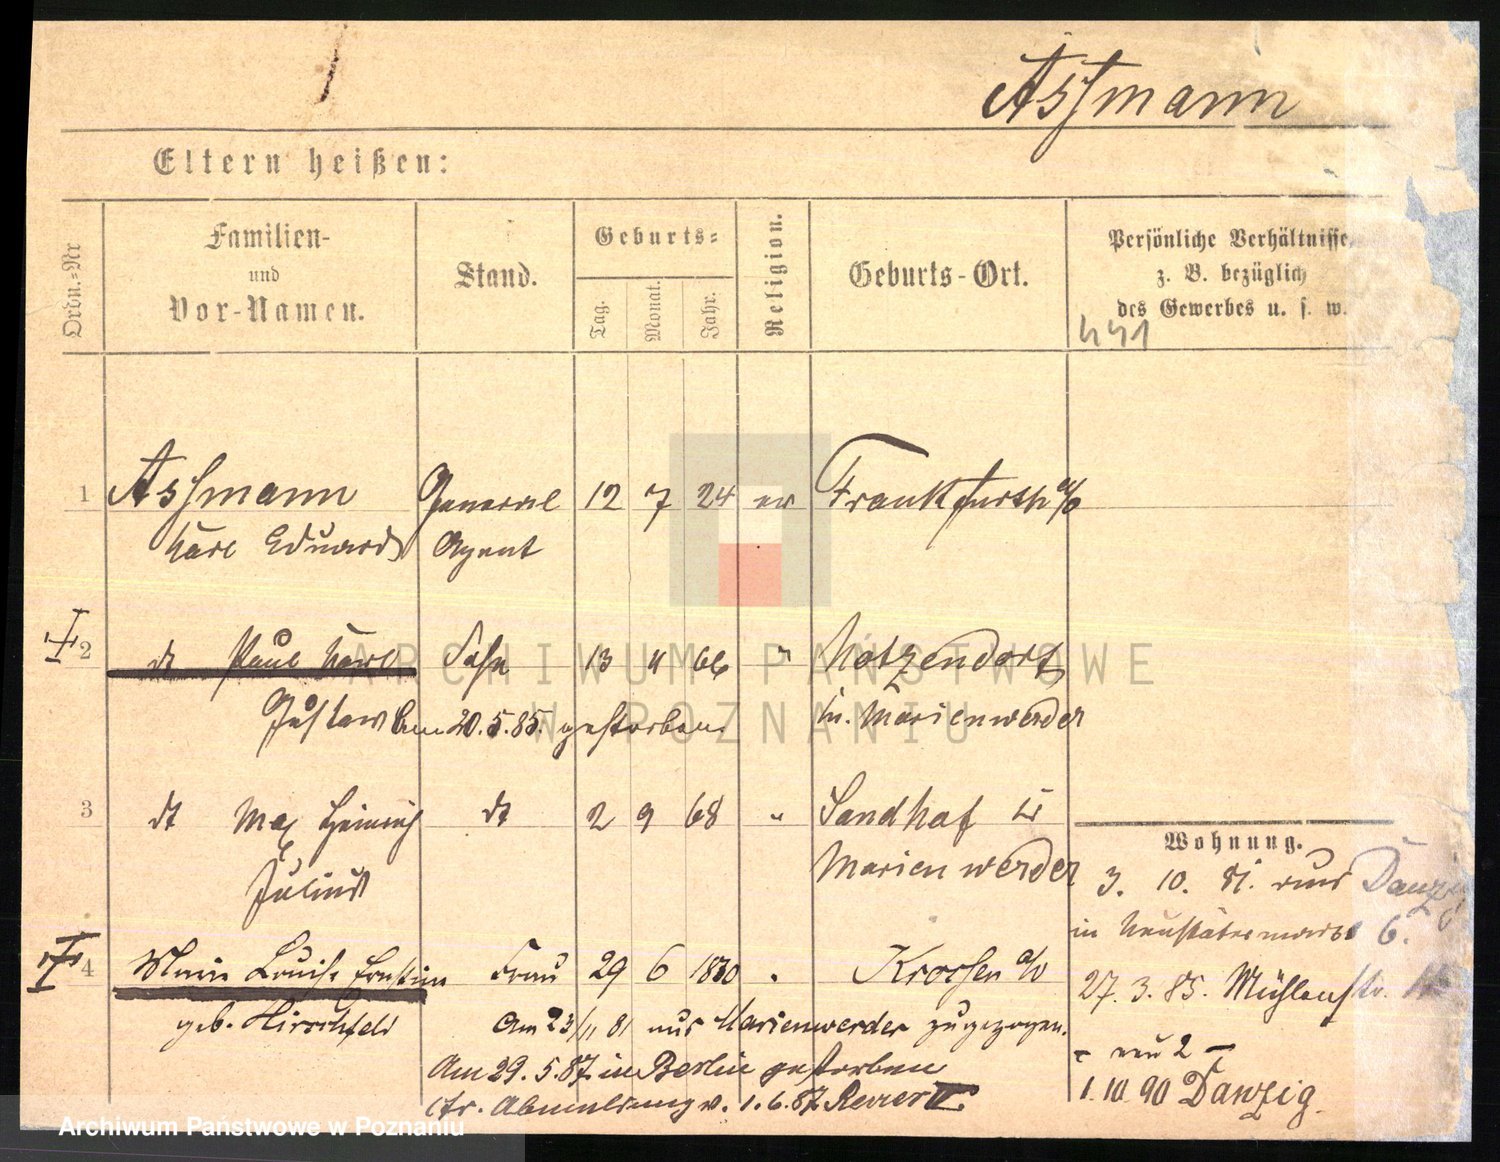 Assmann
Eltern heißen:
Ordn.-Nr
Familien-
und
Vor-Namen.
Stand.
Geburts-
Tag.
Monat.
Jahr.
Religion.
Geburts-Ort.
Persönliche Verhältnisse
z. B. bezüglich
des Gewerbes u. s. w.
441
1 Assmann General 12 7 24 ev Frankfurth a/O
Karl Eduard Agent
2 dt Paul Karl Sohn 13 11 66 " Notzendorf
Gustav Am 20.5.85. gestorben. Marienwerder
3 dt Max Heinrich dt 2 9 68 " Sandhof
Julius Marienwerder
4 Marie Louise Ernstine Frau 29 6 1830 " Krossen a/O
geb. Hirschfeld Am 23/11 81 aus Marienwerder zugezogen.
Am 29.5.87. in Berlin gestorben
cfr. Abmeldung v. 1.6.87. Revier II.
Wohnung.
3. 10. 81. aus Danzig
in Neustädtermarkt 6.
27.3.85. Mühlenstr.
- neu 2 -
1.10.90 Danzig.
ARCHIWUM PAŃSTWOWE
W POZNANIU
Archiwum Państwowe w Poznaniu